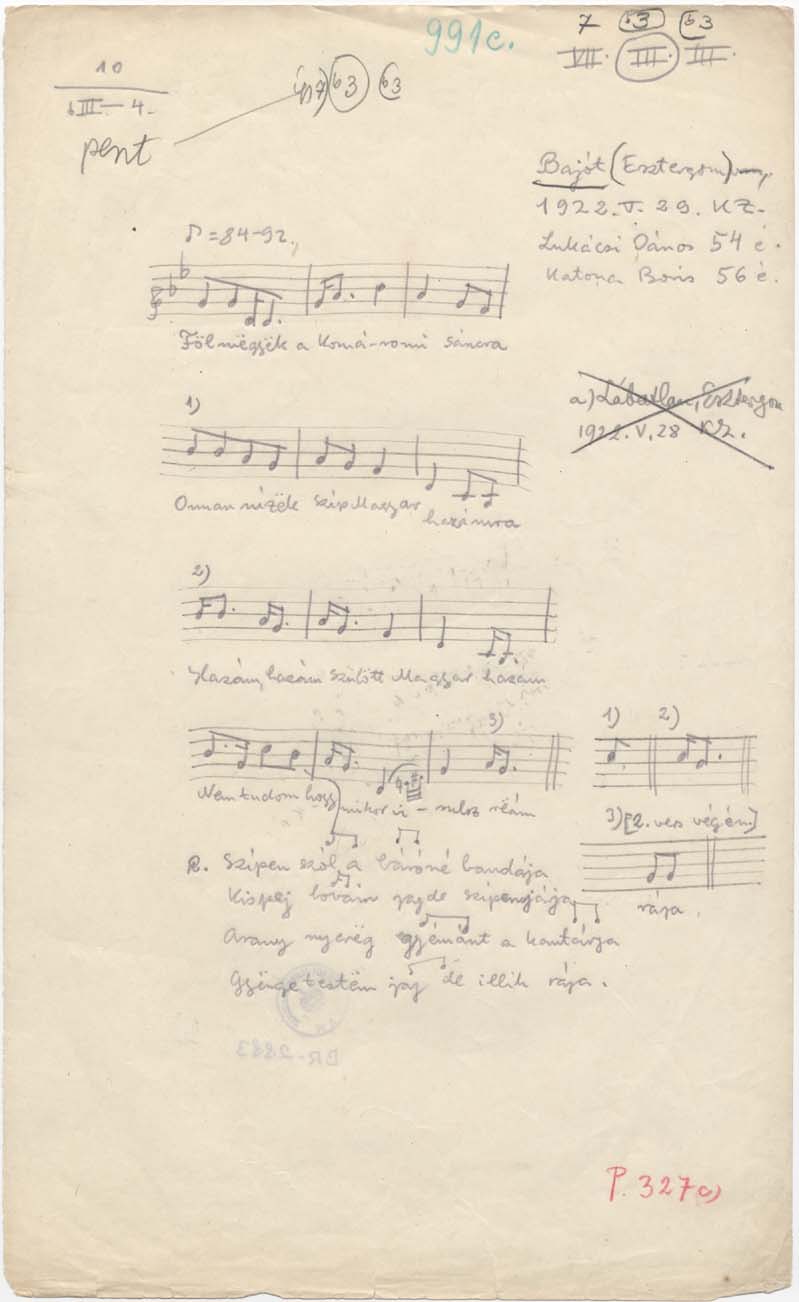 991c.
7 b3 b3
VII. III. III.
10
bIII — 4.
7) b3 b3
pent
Baját (Esztergom)
1922. V. 29. KZ.
Lukácsi János 54 é.
Katona Boris 56 é.
♪ = 84-92.
Föl mëgyëk a Komá-romi sáncra
a) Lábatlan, Esztergom
1922. V. 28 KZ.
1)
Onnan nízëk szíp Magyar hazámra
2)
Hazám, hazám szülött Magyar hazám
3) 1) 2)
Nem tudom hogy mikor vi - sulsz rëám
3) [2. vers végén.]
rája.
2. Szípen szól a báróné bandája
Kispej lovám jajde szipen járja
Arany nyerëg gyémánt a kantárja
Gyënge testëm jaj de illik rája.
BR-2883
P. 327c)